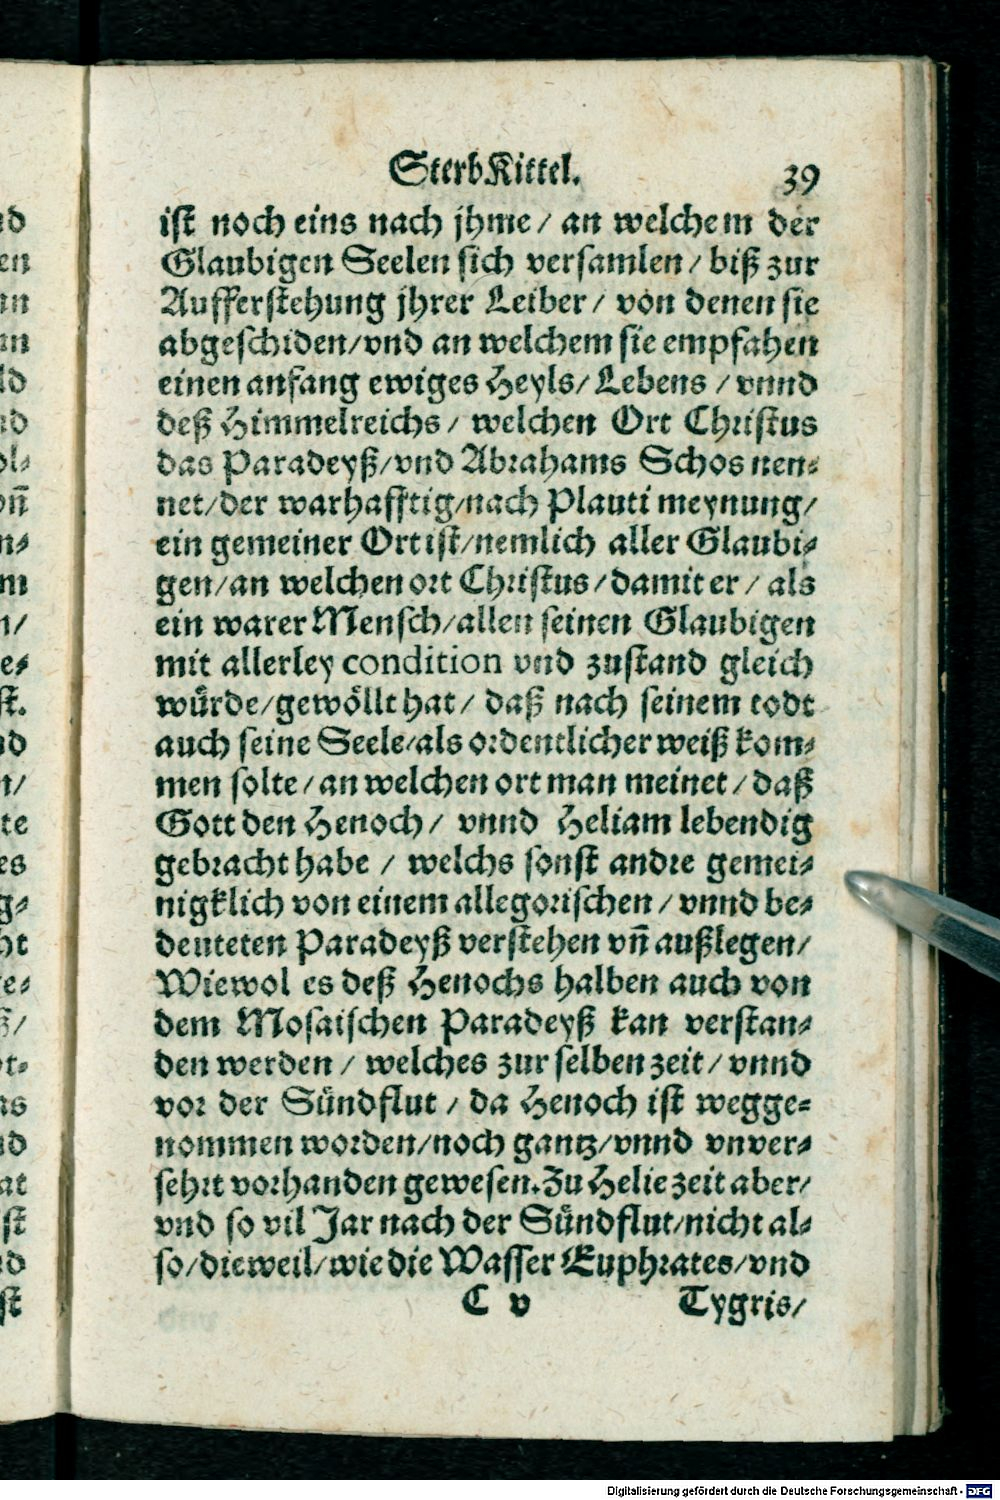 SterbKittel. 39
ist noch eins nach jhme / an welchem der
Glaubigen Seelen sich versamlen / biß zur
Aufferstehung jhrer Leiber / von denen sie
abgeschiden/vnd an welchem sie empfahen
einen anfang ewiges Heyls/ Lebens / vnnd
deß Himmelreichs / welchen Ort Christus
das Paradeyß/vnd Abrahams Schos nen-
net/der warhafftig/nach Plauti meynung/
ein gemeiner Ort ist/nemlich aller Glaubi-
gen/an welchen ort Christus/damit er / als
ein warer Mensch/allen seinen Glaubigen
mit allerley condition vnd zustand gleich
würde/gewöllt hat/ daß nach seinem todt
auch seine Seele/als ordentlicher weiß kom-
men solte/an welchen ort man meinet/daß
Gott den Henoch/ vnnd Heliam lebendig
gebracht habe / welchs sonst andre gemei-
nigklich von einem allegorischen / vnnd be-
deuteten Paradeyß verstehen vñ außlegen/
Wiewol es deß Henochs halben auch von
dem Mosaischen Paradeyß kan verstan-
den werden / welches zur selben zeit/ vnnd
vor der Sündflut / da Henoch ist wegge-
nommen worden/noch gantz/vnnd vnver-
sehrt vorhanden gewesen. Zu Helie zeit aber/
vnd so vil Jar nach der Sündflut/nicht al-
so/dieweil/wie die Wasser Euphrates/vnd
C v Tygris/
Digitalisierung gefördert durch die Deutsche Forschungsgemeinschaft - DFG